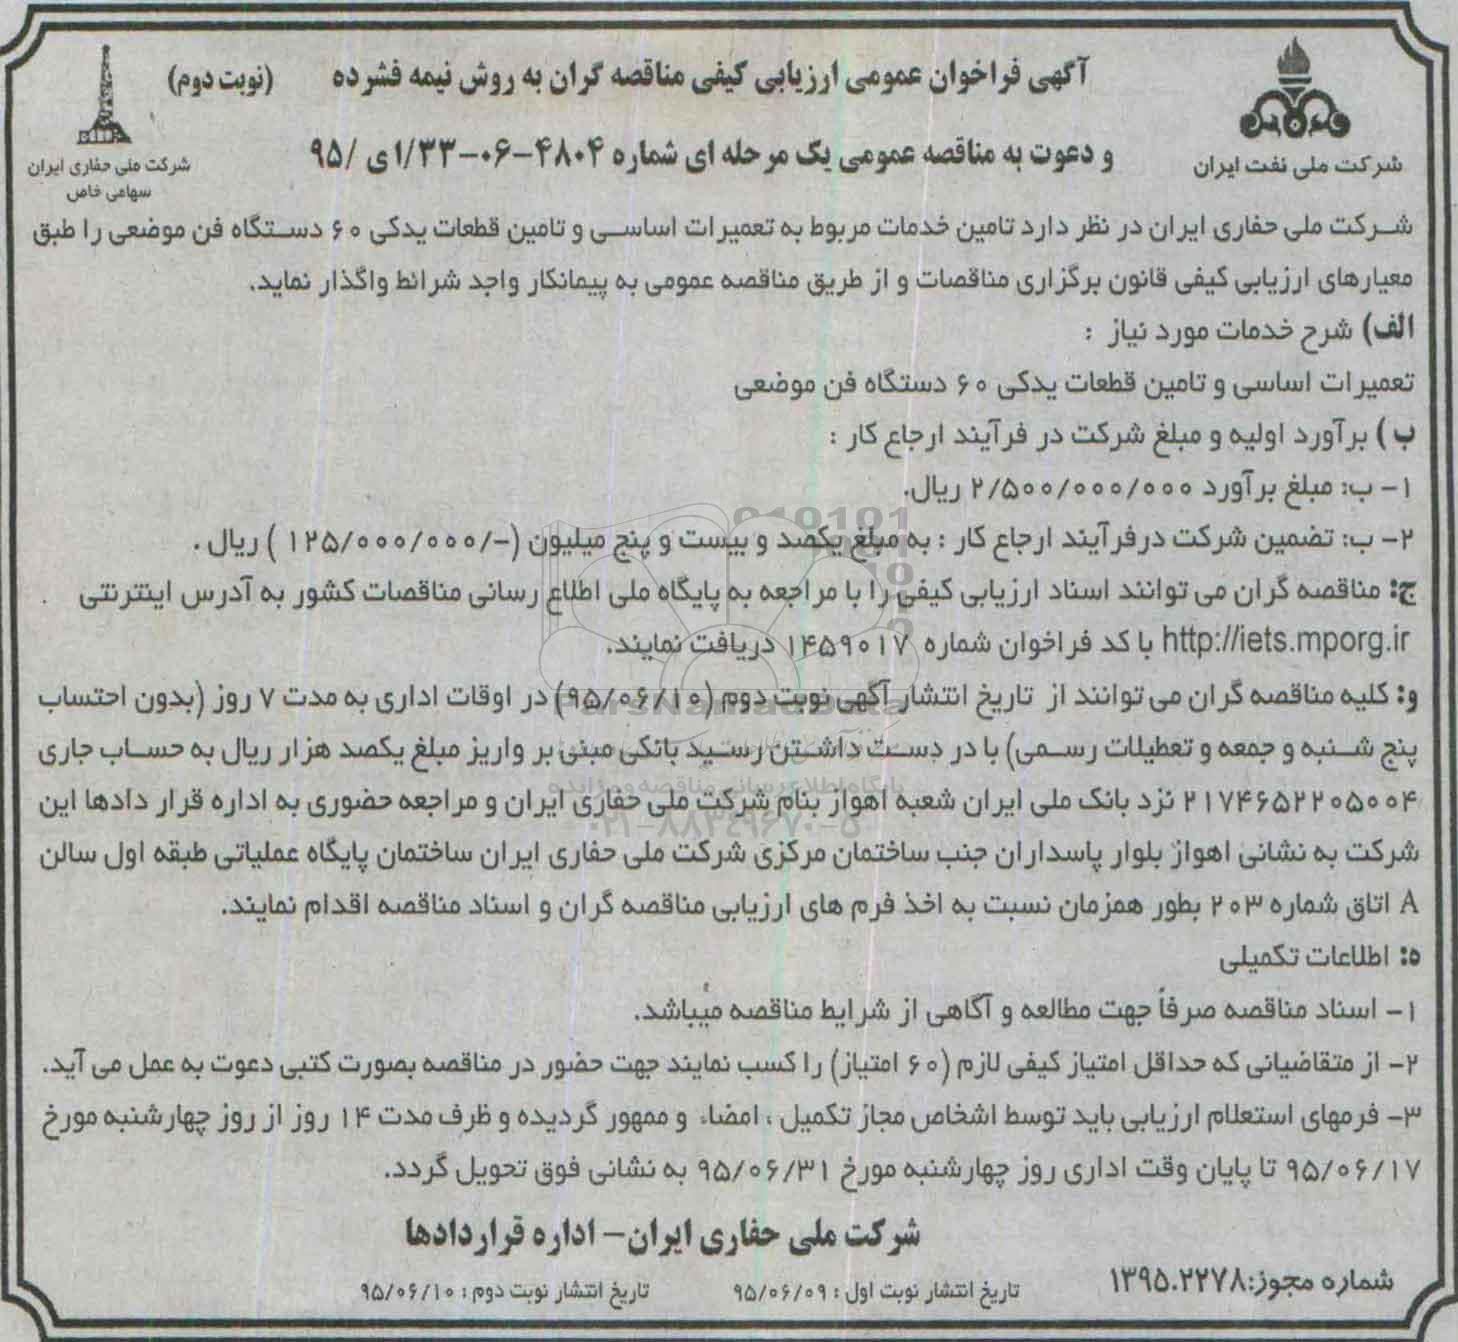 آگهی فراخوان عمومی ارزیابی کیفی مناقصه گران به روش نیمه فشرده (نوبت دوم)
و دعوت به مناقصه عمومی یک مرحله ای شماره ۴۸۰۴-۰۶-۱/۳۳ی /۹۵
شرکت ملی نفت ایران
شرکت ملی حفاری ایران
سهامی خاص
شرکت ملی حفاری ایران در نظر دارد تامین خدمات مربوط به تعمیرات اساسی و تامین قطعات یدکی ۶۰ دستگاه فن موضعی را طبق
معیارهای ارزیابی کیفی قانون برگزاری مناقصات و از طریق مناقصه عمومی به پیمانکار واجد شرائط واگذار نماید.
الف) شرح خدمات مورد نیاز :
تعمیرات اساسی و تامین قطعات یدکی ۶۰ دستگاه فن موضعی
ب) برآورد اولیه و مبلغ شرکت در فرآیند ارجاع کار :
۱- ب: مبلغ برآورد ۲/۵۰۰/۰۰۰/۰۰۰ ریال.
۲- ب: تضمین شرکت درفرآیند ارجاع کار : به مبلغ یکصد و بیست و پنج میلیون (-/۱۲۵/۰۰۰/۰۰۰ ) ریال .
ج: مناقصه گران می توانند اسناد ارزیابی کیفی را با مراجعه به پایگاه ملی اطلاع رسانی مناقصات کشور به آدرس اینترنتی
http://iets.mporg.ir با کد فراخوان شماره ۱۴۵۹۰۱۷ دریافت نمایند.
و: کلیه مناقصه گران می توانند از تاریخ انتشار آگهی نوبت دوم (۹۵/۰۶/۱۰) در اوقات اداری به مدت ۷ روز (بدون احتساب
پنج شنبه و جمعه و تعطیلات رسمی) با در دست داشتن رسید بانکی مبنی بر واریز مبلغ یکصد هزار ریال به حساب جاری
۲۱۷۴۶۵۲۲۰۵۰۰۴ نزد بانک ملی ایران شعبه اهواز بنام شرکت ملی حفاری ایران و مراجعه حضوری به اداره قرار دادها این
شرکت به نشانی اهواز بلوار پاسداران جنب ساختمان مرکزی شرکت ملی حفاری ایران ساختمان پایگاه عملیاتی طبقه اول سالن
A اتاق شماره ۲۰۳ بطور همزمان نسبت به اخذ فرم های ارزیابی مناقصه گران و اسناد مناقصه اقدام نمایند.
ه: اطلاعات تکمیلی
۱- اسناد مناقصه صرفاً جهت مطالعه و آگاهی از شرایط مناقصه میباشد.
۲- از متقاضیانی که حداقل امتیاز کیفی لازم (۶۰ امتیاز) را کسب نمایند جهت حضور در مناقصه بصورت کتبی دعوت به عمل می آید.
۳- فرمهای استعلام ارزیابی باید توسط اشخاص مجاز تکمیل ، امضاء و ممهور گردیده و ظرف مدت ۱۴ روز از روز چهارشنبه مورخ
۹۵/۰۶/۱۷ تا پایان وقت اداری روز چهارشنبه مورخ ۹۵/۰۶/۳۱ به نشانی فوق تحویل گردد.
شرکت ملی حفاری ایران- اداره قراردادها
شماره مجوز:۱۳۹۵.۲۲۷۸
تاریخ انتشار نوبت اول : ۹۵/۰۶/۰۹
تاریخ انتشار نوبت دوم : ۹۵/۰۶/۱۰
ParsNamadData
پایگاه اطلاع رسانی مناقصه و مزایده
۰۲۱-۸۸۳۴۹۶۷۰-۵